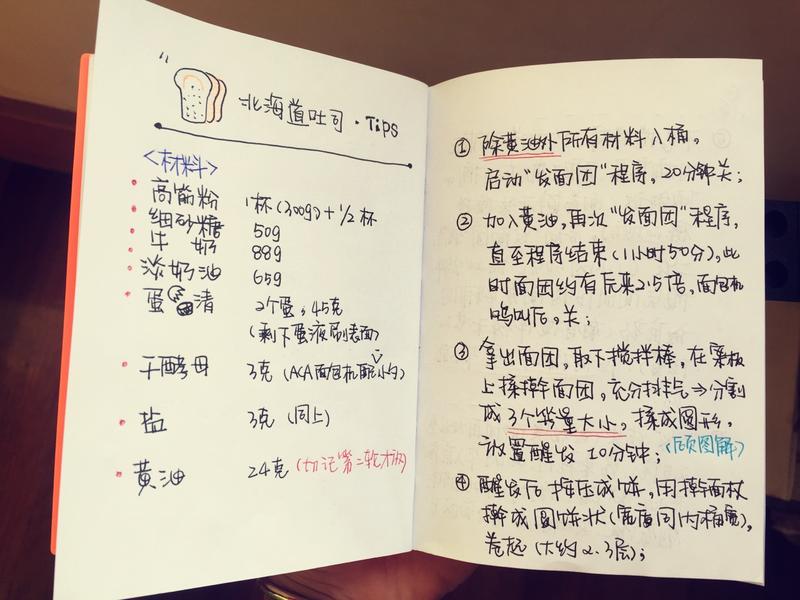 北海道吐司·TiPS
<材料>
高筋粉 1杯(300g)+1/2杯
细砂糖 50g
牛奶 88g
淡奶油 65g
蛋清 2个蛋,45克
(剩下蛋液刷表面)
干酵母 3克(ACA面包机配小勺)
盐 3克(同上)
黄油 24克(切记第二轮才放)
① 除黄油外所有材料入桶。
启动“发面团”程序,20分钟关;
② 加入黄油,再次“发面团”程序,
直至程序结束(1小时50分),此
时面团约有原来2.5倍,面包机
鸣叫后,关;
③ 拿出面团,取下搅拌棒,在案板
上揉擀面团,充分排气→分割
成3个等量大小,揉成圆形,
放置醒发10分钟;(后页图解)
④ 醒发后按压成饼,用擀面杖
擀成圆饼状(宽度同内桶宽),
卷起(大约2.3层);